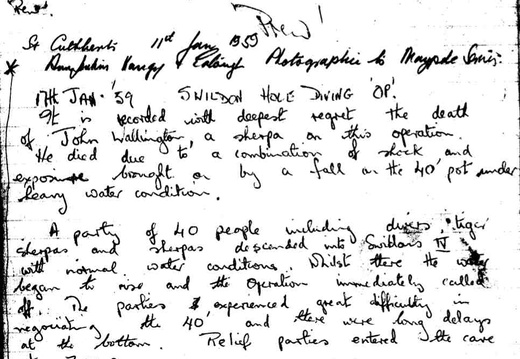 Prew!
Prew!
St Cuthberts 11th Jan 1959
* Photographic to Maypole Series.
17TH JAN '59 SWILDON HOLE DIVING 'OP.'
It is recorded with deepest regret the death
of John Wallington, a sherpa on this operation.
He died due to a combination of shock and
exposure brought on by a fall on the 40' pot under
heavy water condition.
A party of 40 people including divers, tiger
sherpas and sherpas descended into Swildons IV
with normal water conditions. Whilst there the water
began to rise and the operation immediately called
off. The parties experienced great difficulty in
negotiating the 40' and there were long delays
at the bottom. Relief parties entered the cave